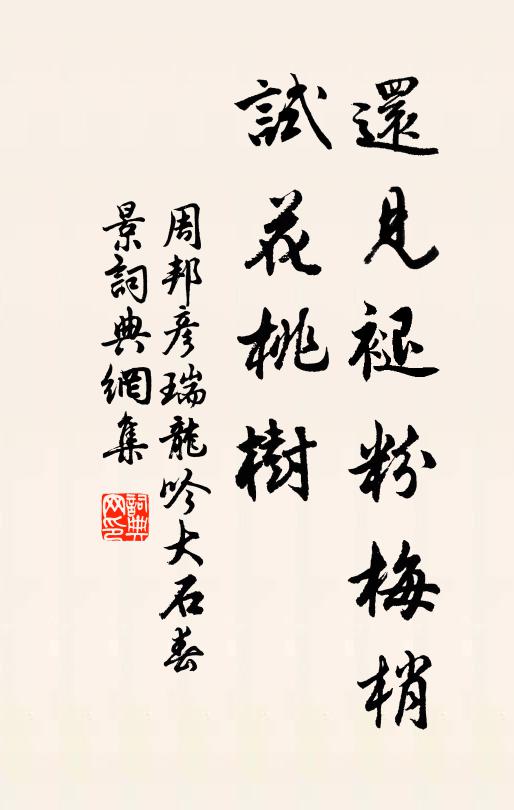 還見褪粉梅梢
試花桃樹
周邦彥瑞龍吟大石春
景詞典網集
詞典网印